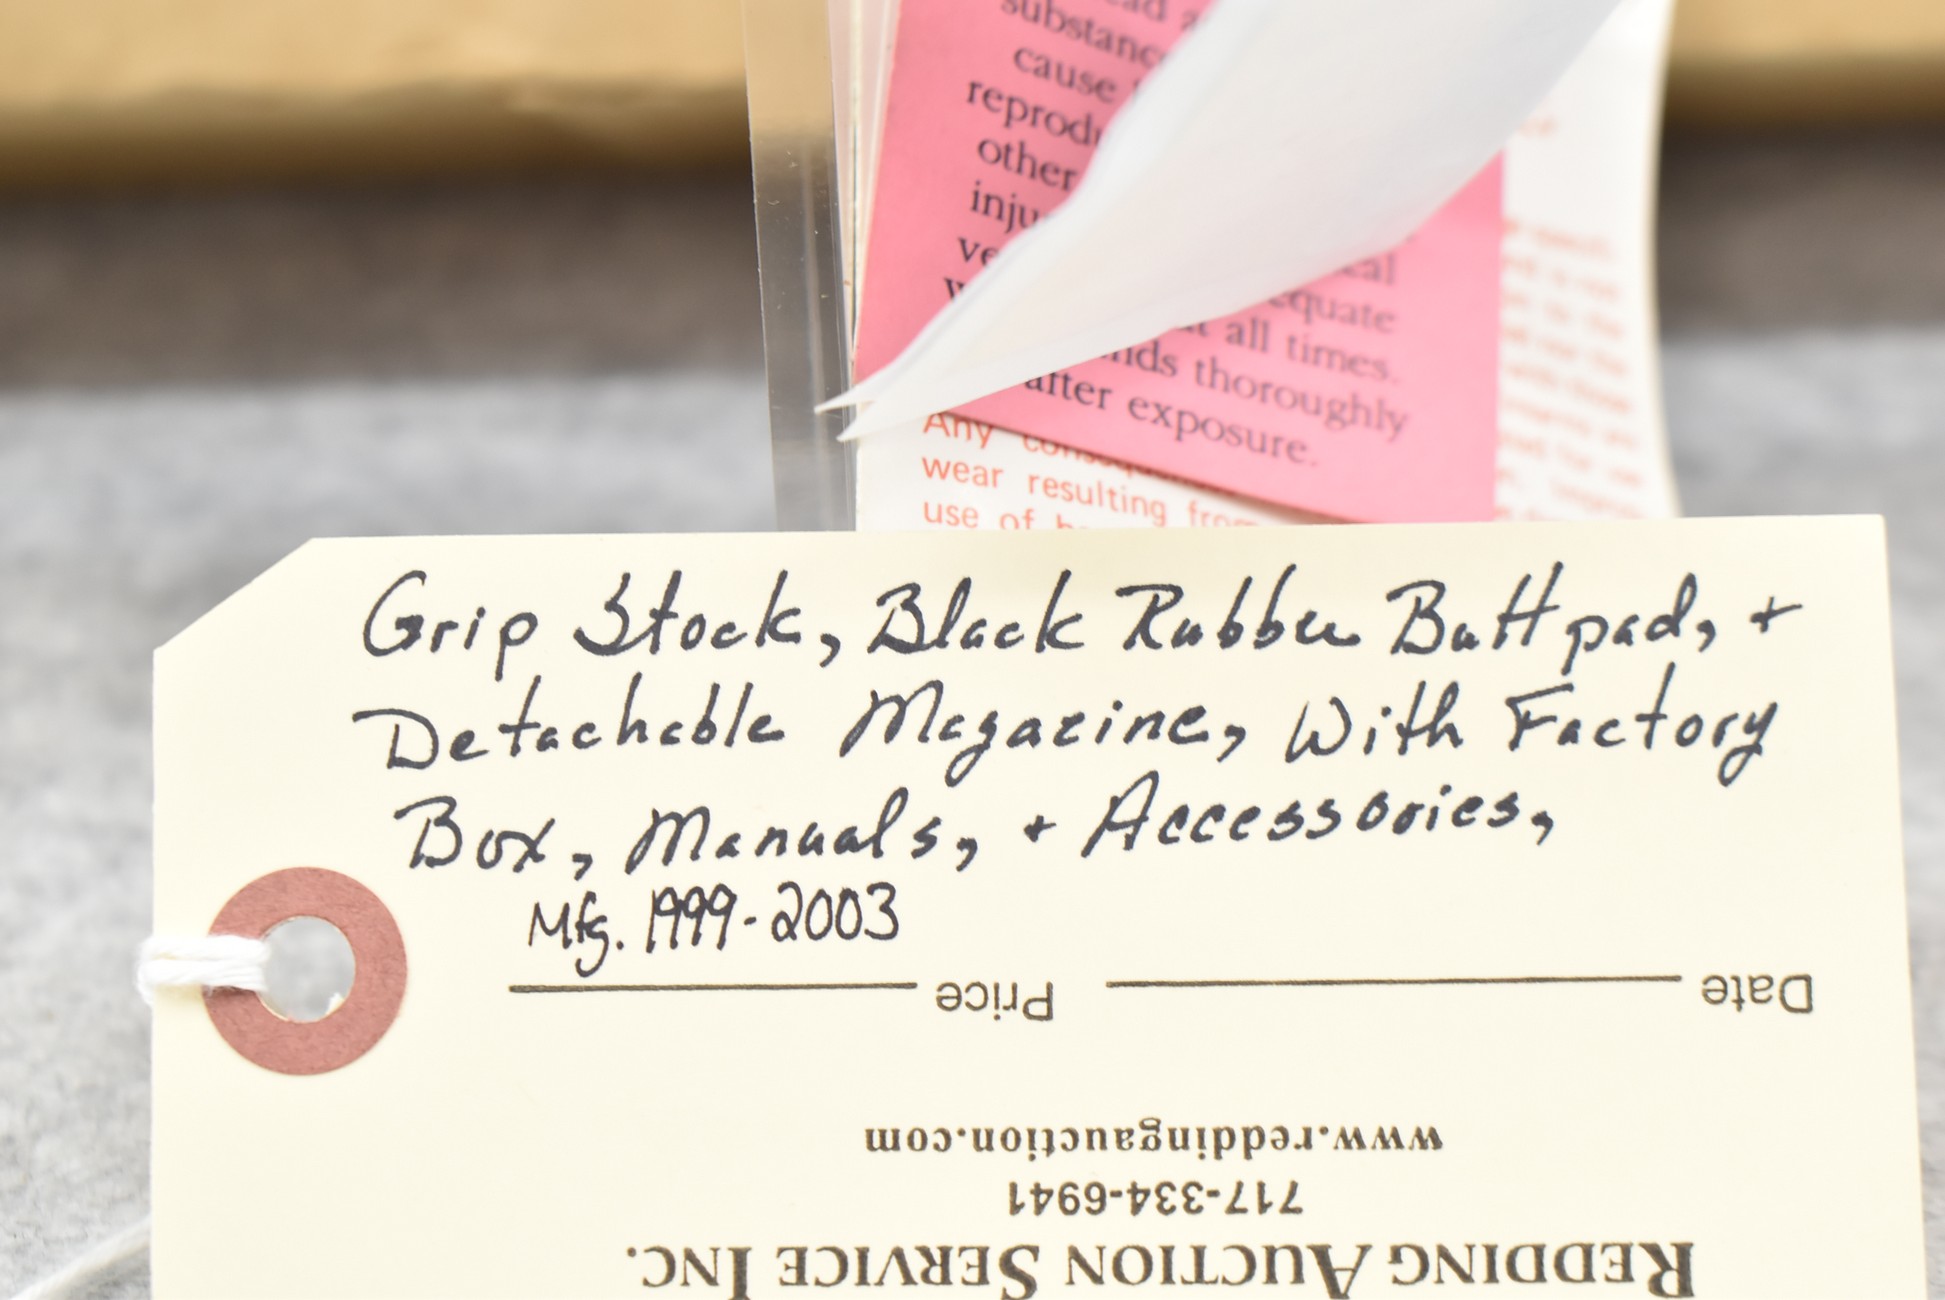 substanc
cause
reprodu
other
inju
ve
equate
at all times.
nds thoroughly
after exposure.
Any consequ
wear resulting from
use of
Grip Stock, Black Rubber Buttpad, +
Detachable Magazine, With Factory
Box, Manuals, + Accessories,
Mfg. 1999-2003
Date Price
www.reddingauction.com
717-334-6941
REDDING AUCTION SERVICE INC.